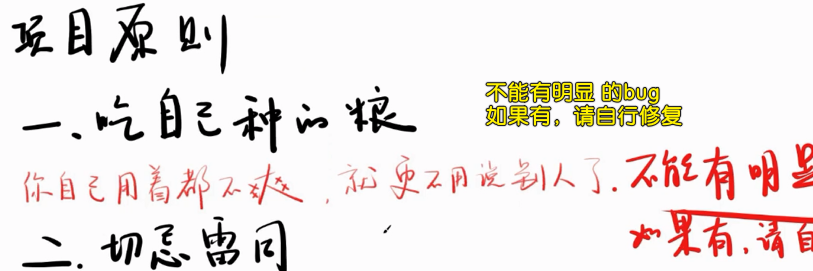 项目原则
一、吃自己种的粮
不能有明显 的bug
如果有，请自行修复
你自己用着都不爽，就更不用说别人了.
不能有明显
如果有，请自
二、切忌雷同